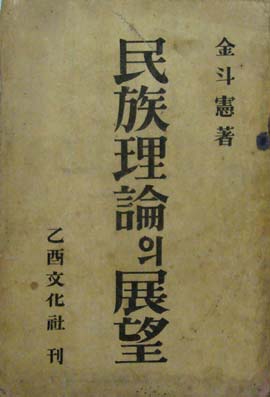 金斗憲著
民族理論의展望
乙酉文化社 刊